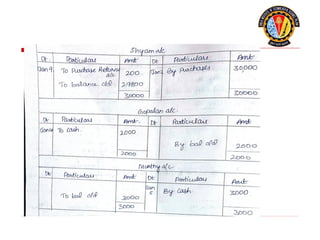 Shyam a/c
Dt Particulars Amt Dt Particulars Amt
Jan 9 To Purchase Return a/c 200 Jan 2 By Purchases 30000
To balance c/d 29800
30000 30000
Gopalan a/c
Dt Particulars Amt Dt Particulars Amt
To Cash 2000
By bal c/d 2000
2000 2000
Murthy a/c
Dt Particulars Amt Dt Particulars Amt
To bal c/d 3000 Jan 5 By Cash 3000
3000 3000